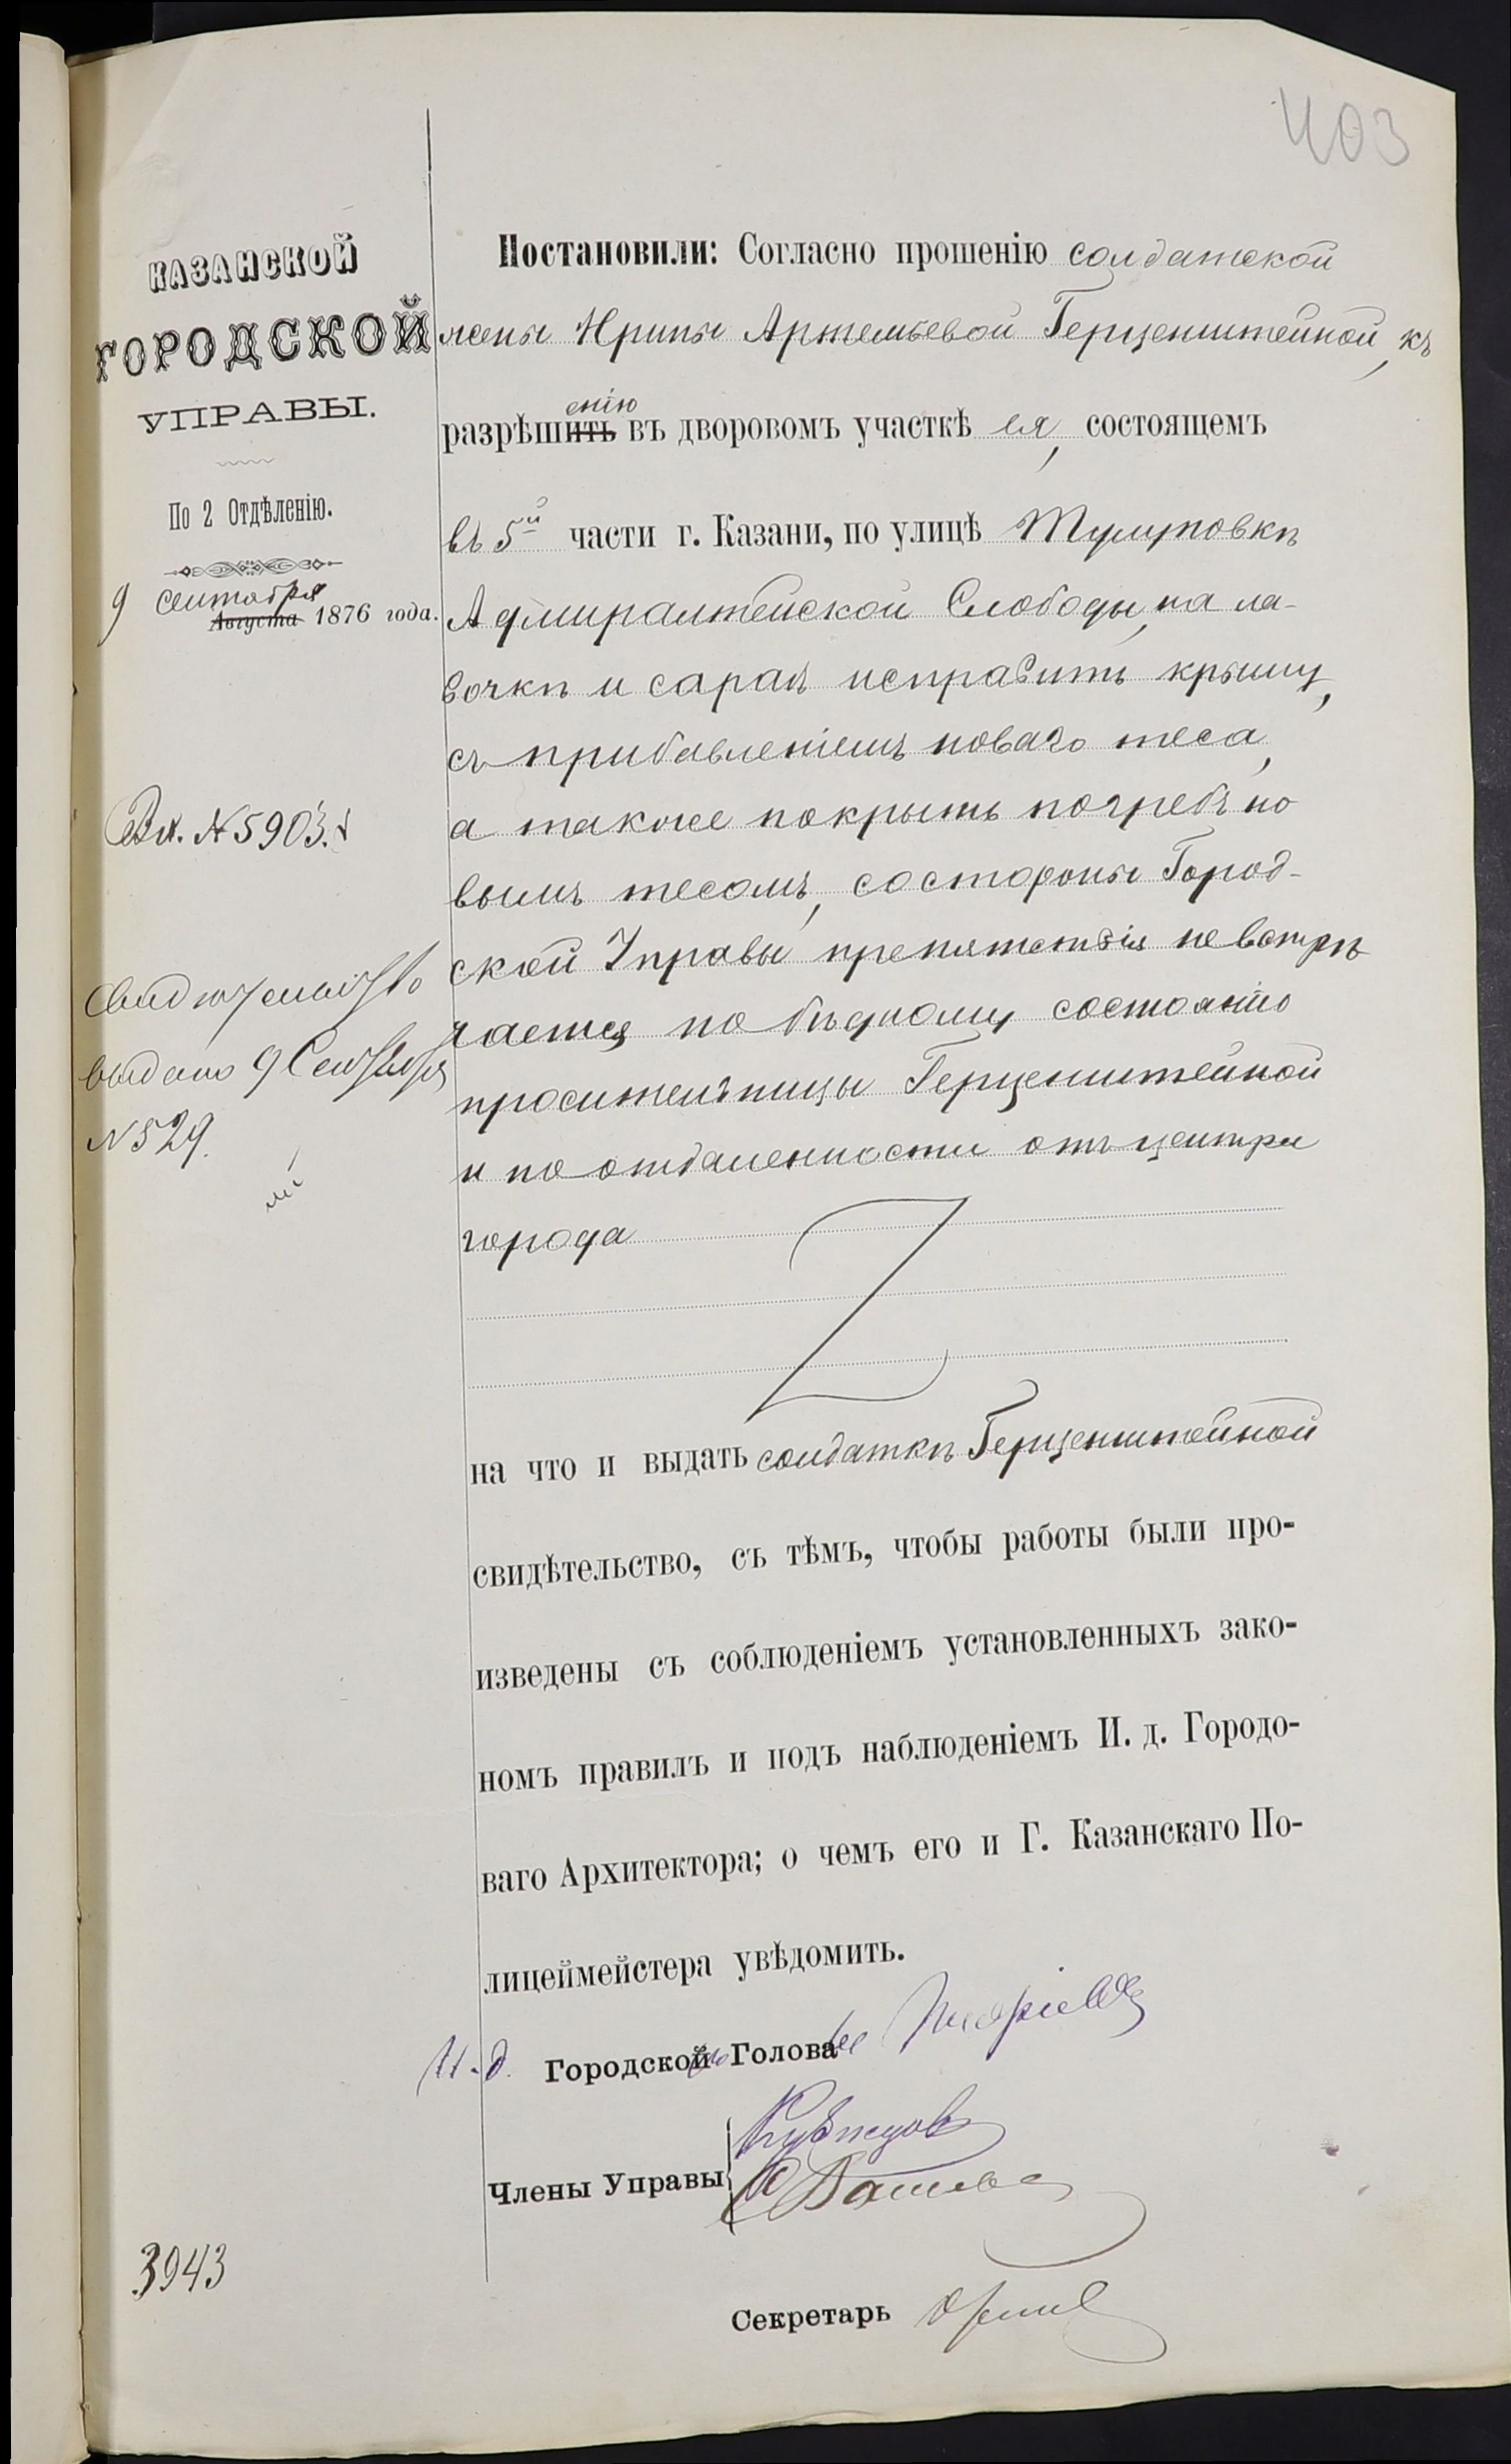 403
КАЗАНСКОЙ
ГОРОДСКОЙ
УПРАВЫ.
По 2 Отдѣленію.
9 Сентября
Августа 1876 года.
Вх. № 5903.
Свидѣтельство
выдано 9 Сентября
№ 529.
3943
Постановили: Согласно прошенію солдатской
жены Ирины Артемьевой Герценштейной, къ
енію
разрѣшить въ дворовомъ участкѣ ея, состоящемъ
въ 5й части г. Казани, по улицѣ
Адмиралтейской Слободы, на ла-
вочкѣ и сараѣ исправить крышу,
съ прибавленіемъ новаго теса,
а также покрыть погребъ но
вымъ тесомъ, со стороны Город-
ской Управы препятствія не встрѣ
чается по бѣдному состоянію
просительницы Герценштейной
и по отдаленности отъ центра
города
на что и выдать солдаткѣ Герценштейной
свидѣтельство, съ тѣмъ, чтобы работы были про-
изведены съ соблюденіемъ установленныхъ зако-
номъ правилъ и подъ наблюденіемъ И. д. Городо-
ваго Архитектора; о чемъ его и Г. Казанскаго По-
лицеймейстера увѣдомить.
И. д. Городской Голова
Члены Управы Кузнецовъ
Секретарь